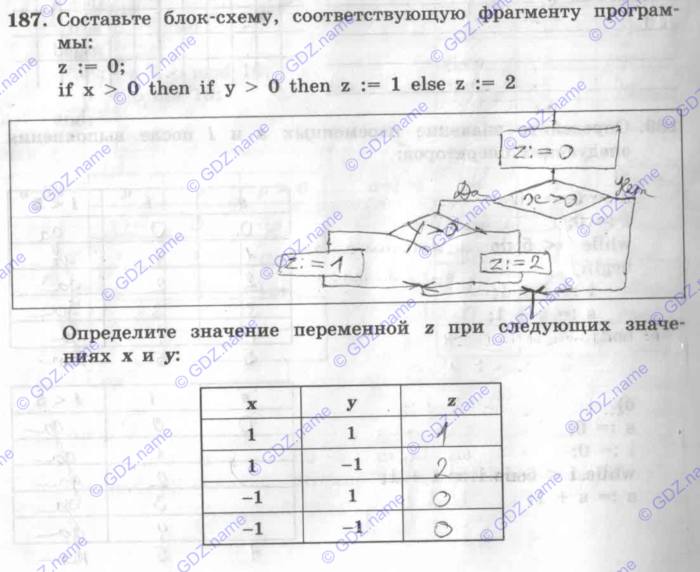 187. Составьте блок-схему, соответствующую фрагменту програм-
мы:
z := 0;
if x > 0 then if y > 0 then z := 1 else z := 2
z:=0
Да x>0 Нет
y>0
z:=1 z:=2
Определите значение переменной z при следующих значе-
ниях x и y:
x y z
1 1 1
1 −1 2
−1 1 0
−1 −1 0
© GDZ.name